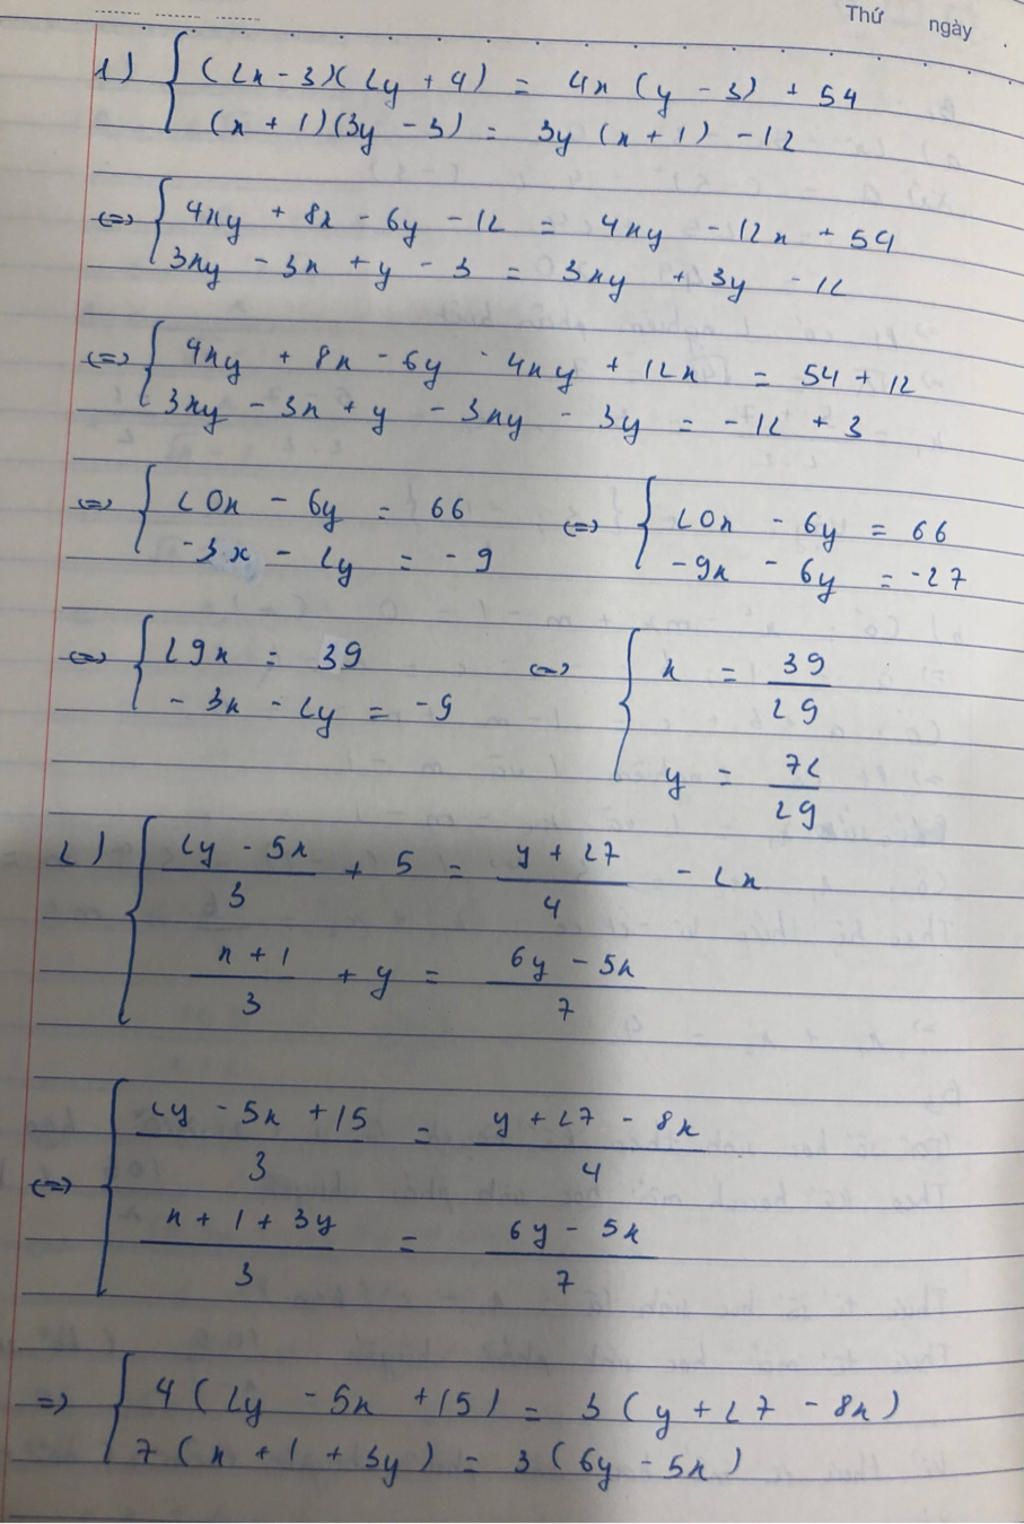 Thứ ngày
1) { (2x - 3)(2y + 4) = 4x (y - 3) + 54
(x + 1)(3y - 3) = 3y (x + 1) - 12
<=> { 4xy + 8x - 6y - 12 = 4xy - 12x + 54
3xy - 3x + y - 3 = 3xy + 3y - 12
<=> { 4xy + 8x - 6y - 4xy + 12x = 54 + 12
3xy - 3x + y - 3xy - 3y = -12 + 3
<=> { 20x - 6y = 66 <=> { 20x - 6y = 66
-3x - 2y = -9 -9x - 6y = -27
<=> { 29x = 39 <=> { x = 39/29
-3x - 2y = -9 y = 72/29
2) { (2y - 5x)/3 + 5 = (y + 27)/4 - 2x
(x + 1)/3 + y = (6y - 5x)/7
<=> { (2y - 5x + 15)/3 = (y + 27 - 8x)/4
(x + 1 + 3y)/3 = (6y - 5x)/7
=> { 4(2y - 5x + 15) = 3(y + 27 - 8x)
7(x + 1 + 3y) = 3(6y - 5x)